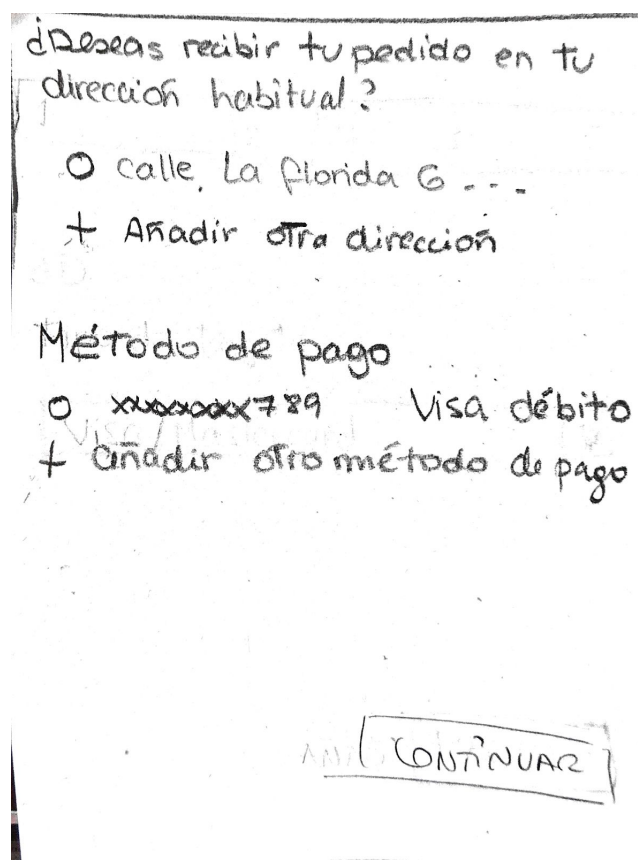 ¿Deseas recibir tu pedido en tu
dirección habitual?
O calle, La florida 6 ...
+ Añadir otra dirección
Método de pago
O xxxxxxxxx789 Visa débito
+ añadir otro método de pago
CONTINUAR